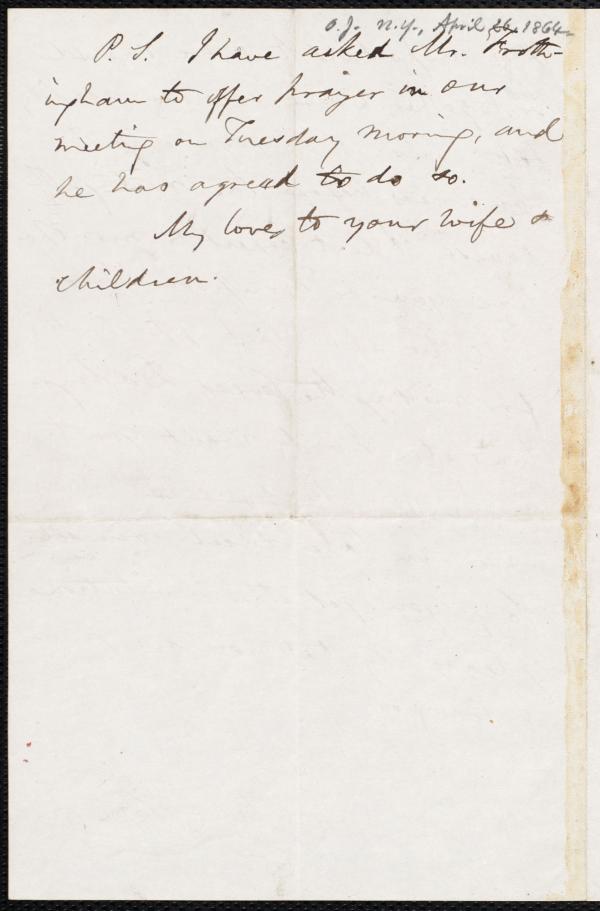 O.J. N.Y., April 26, 1864.
P.S. I have asked Mr. Froth-
ingham to offer prayer in our
meeting on Tuesday morning, and
he has agreed to do so.
My love to your wife &
children.